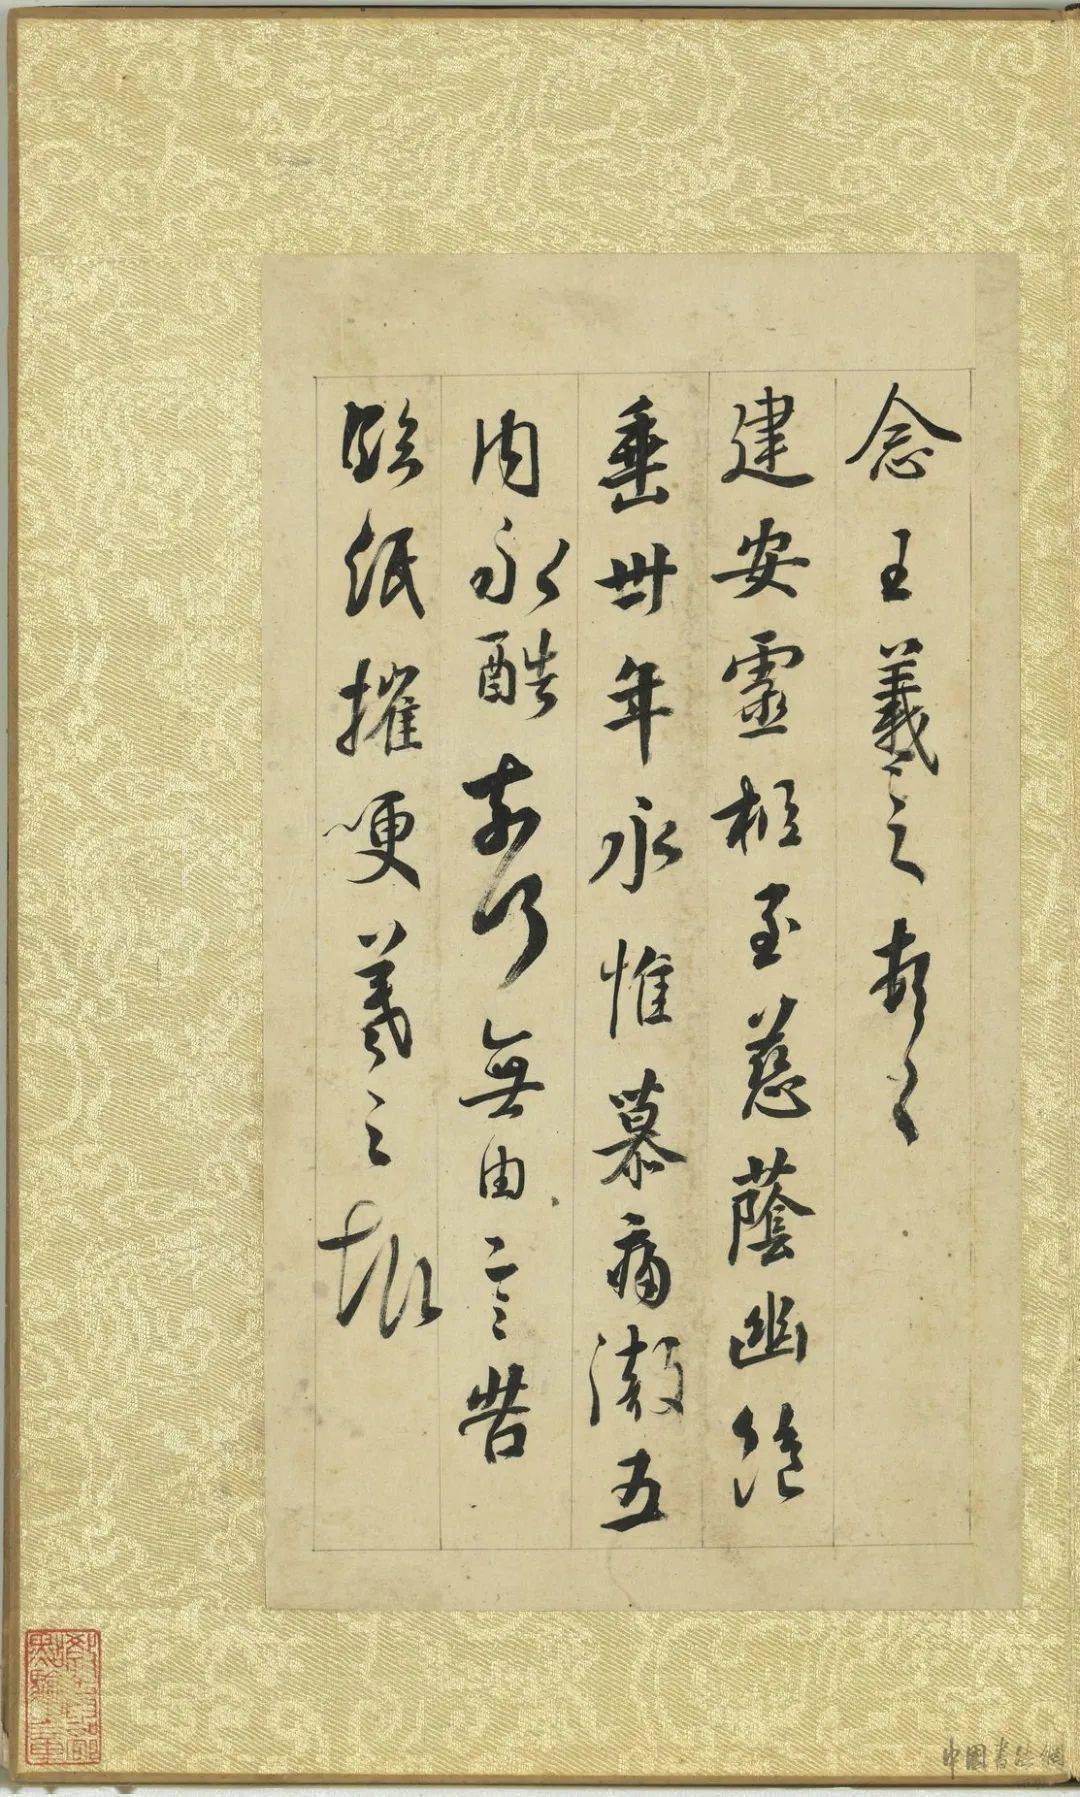 念王羲之頓首
建安靈柩至慈蔭幽絕
垂卅年永惟慕痛徹五
內永酷奈何無由言苦
臨紙摧哽羲之報
中國書法網